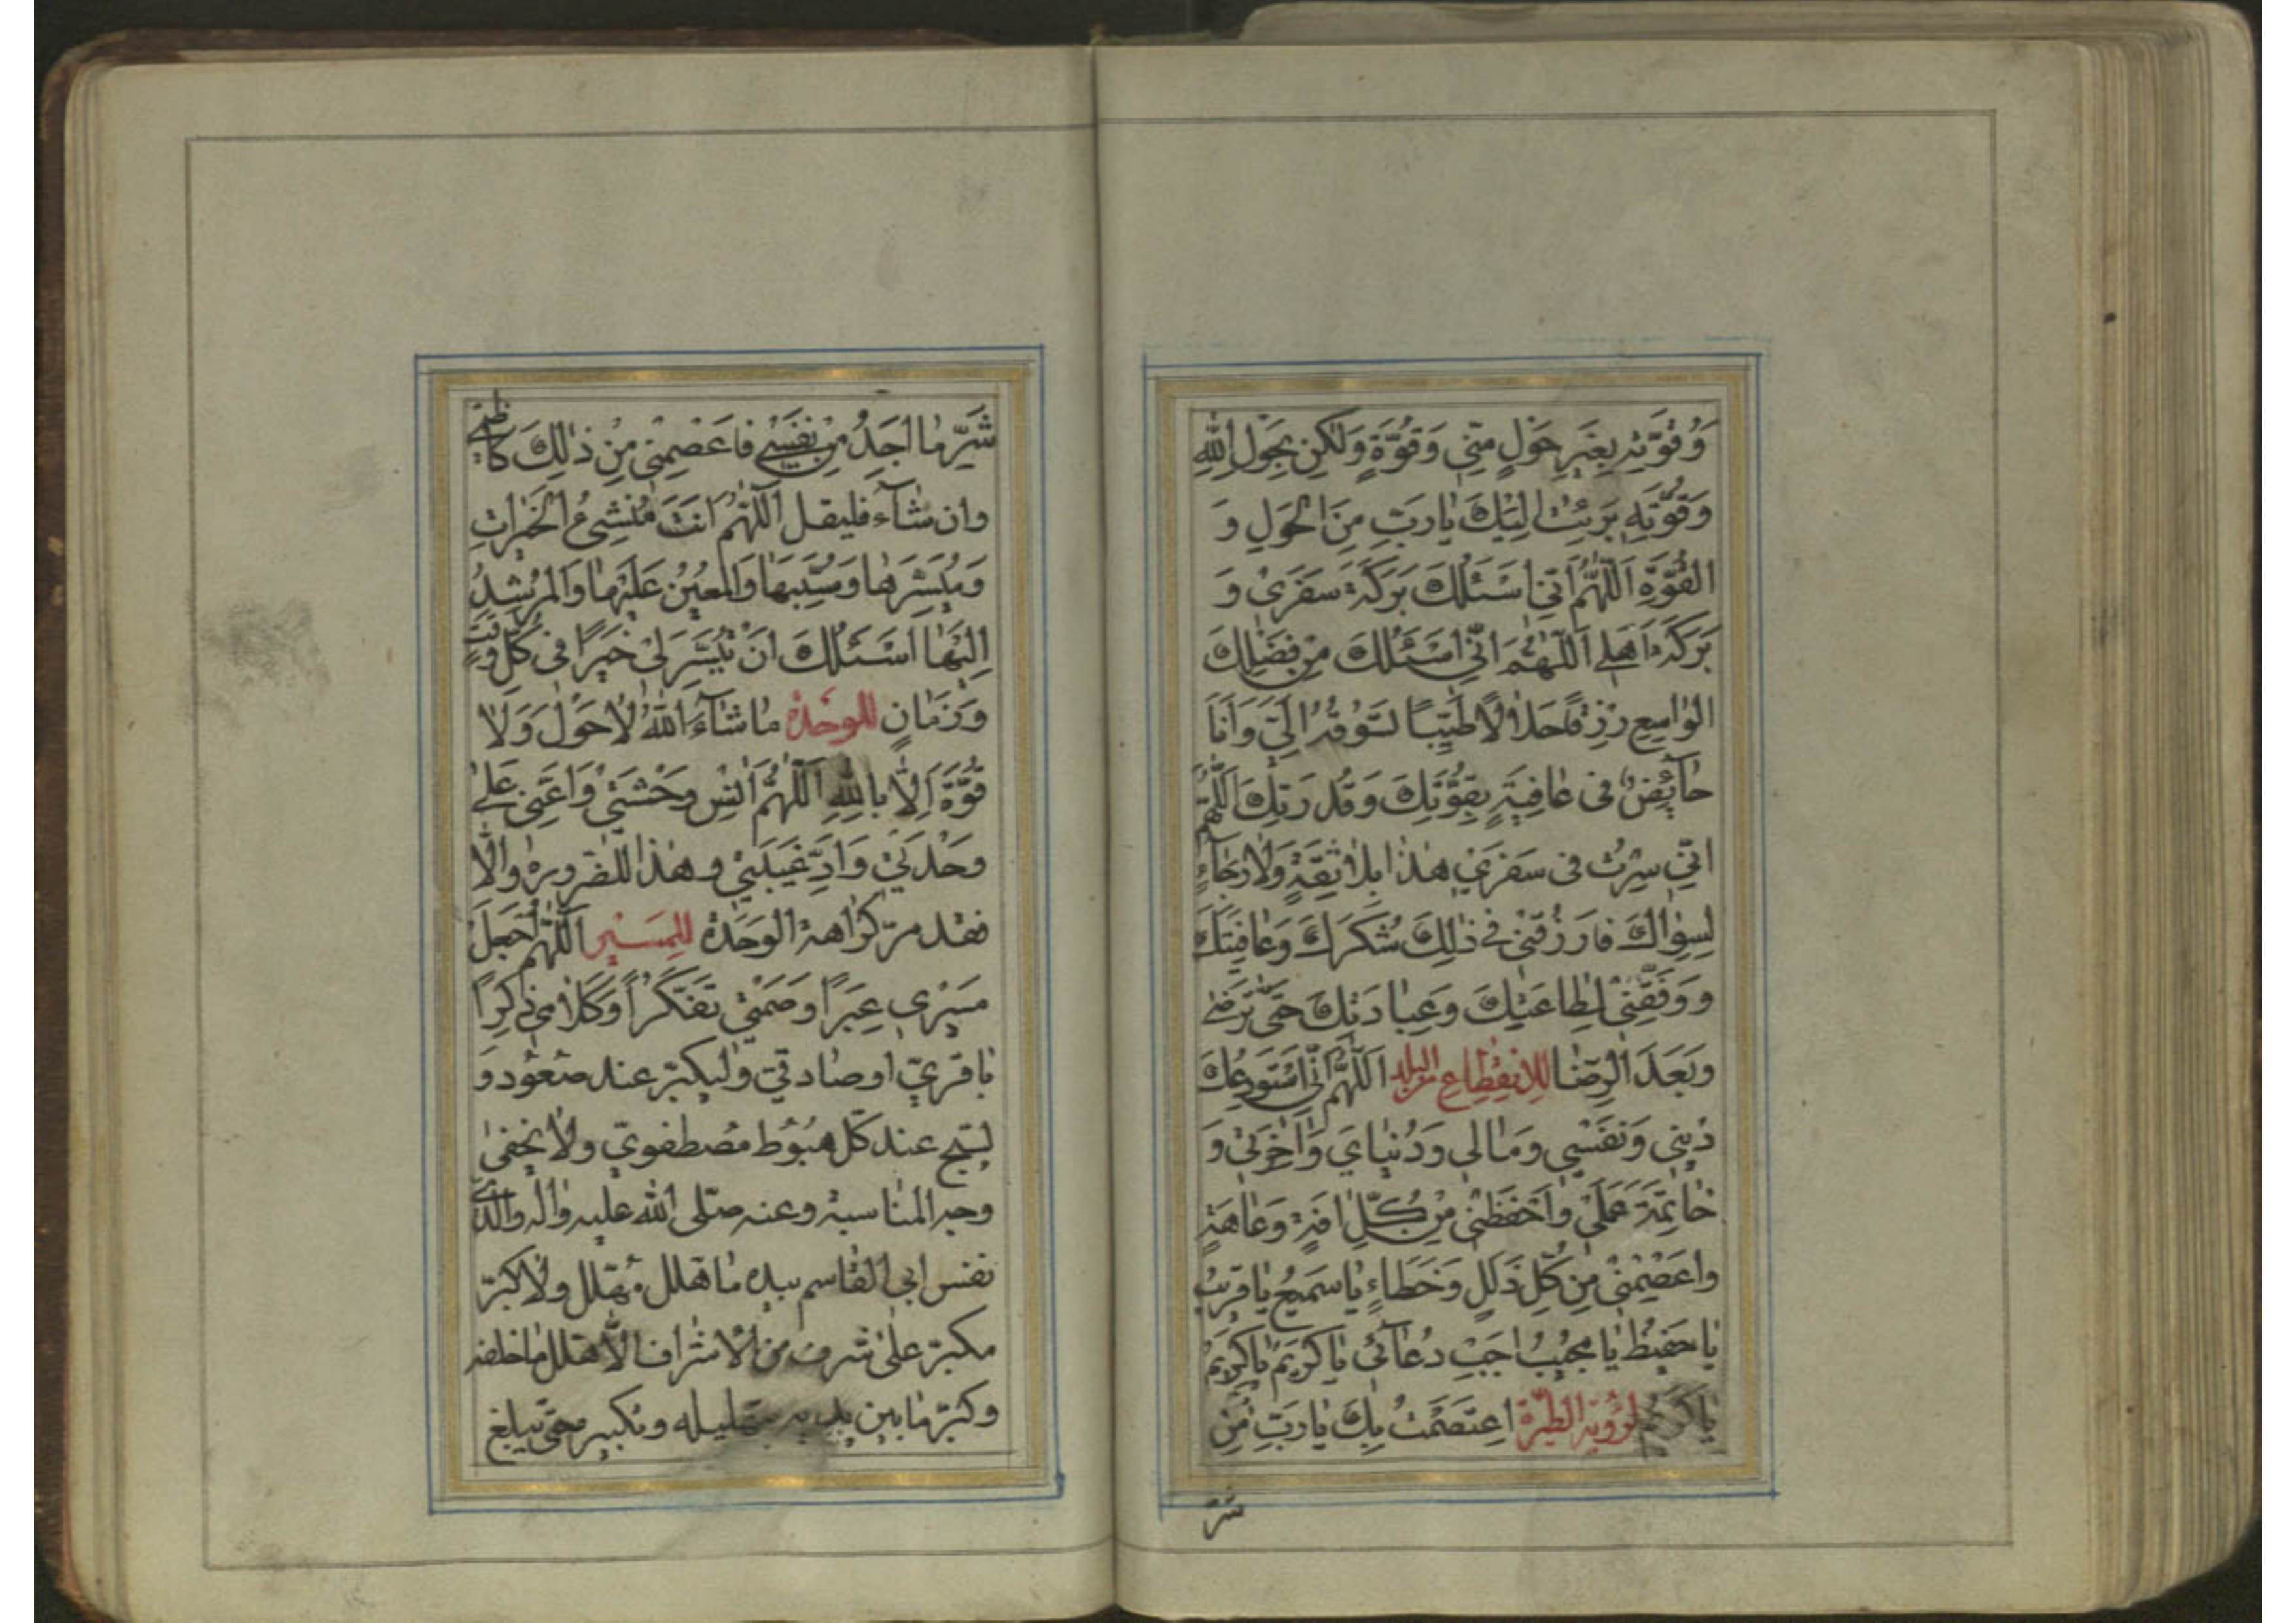 وَقُوَّتِهِ بِغَيْرِ حَوْلٍ مِنّي وَقُوَّةٍ وَلٰكِنْ بِحَوْلِ اللهِ
وَقُوَّتِهِ بَرِئْتُ اِلَيْكَ يٰا رَبِّ مِنَ الْحَوْلِ وَ
الْقُوَّةِ اَللّٰهُمَّ اِنّي اَسْئَلُكَ بَرَكَةَ سَفَرَي وَ
بَرَكَةَ اَهْلِي اَللّٰهُمَّ اِنّي اَسْئَلُكَ مِنْ فَضْلِكَ
الْوٰاسِعِ رِزْقًا حَلٰالًا طَيِّبًا تَسُوقُهُ اِلَيَّ وَاَنَا
خٰآئِضٌ فى عٰافِيَةٍ بِقُوَّتِكَ وَقُدْرَتِكَ اَللّٰهُمَّ
اِنّي سِرْتُ فى سَفَرَي هٰذٰا بِلٰا ثِقَةٍ وَلٰا رَجٰآءٍ
لِسِوٰاكَ فَارْزُقْنِي فِي ذٰلِكَ شُكْرَكَ وَعٰافِيَتَكَ
وَوَفِّقْنِي لِطٰاعَتِكَ وَعِبٰادَتِكَ حَتّٰى تَرْضٰى
وَبَعْدَ الرِّضٰا لِلاِنْقِطٰاعِ مِنَ الْبَلَدِ اَللّٰهُمَّ اِنّي اَسْتَوْدِعُكَ
دٖيني وَنَفْسي وَمٰالي وَدُنْيٰايَ وَاٰخِرَتي وَ
خٰاتِمَةَ عَمَلي وَاحْفَظْنِي مِنْ كُلِّ اٰفَةٍ وَعٰاهَةٍ
وَاعْصِمْنِي مِنْ كُلِّ زَلَلٍ وَخَطَاءٍ يٰا سَمٖيعُ يٰا قَرٖيبُ
يٰا حَفٖيظُ يٰا مُجٖيبُ اَجِبْ دُعٰآئي يٰا كَرٖيمُ يٰا كَرٖيمُ
يٰا كَرٖيمُ لِرُؤْيَةِ الطِّيَرَةِ اِعْتَصَمْتُ بِكَ يٰا رَبِّ مِنْ
شَرِّ
شَرِّ مٰا اَجِدُ مِنْ نَفْسي فَاعْصِمْنِي مِنْ ذٰلِكَ كٰا
وان شآء فليقل اَللّٰهُمَّ اَنْتَ مُنْشِئُ الْخَيْرٰاتِ
وَمُيَسِّرُهٰا وَمُسَبِّبُهٰا وَالْمُعٖينُ عَلَيْهٰا وَالْمُرْشِدُ
اِلَيْهٰا اَسْئَلُكَ اَنْ تُيَسِّرَ لي خَيْرًا فى كُلِّ وَقْتٍ
وَزَمٰانٍ لِلوَحْدَةِ مٰا شٰآءَ اللهُ لٰا حَوْلَ وَلٰا
قُوَّةَ اِلّٰا بِاللهِ اَللّٰهُمَّ اٰنِسْ وَحْشَتي وَاَعِنّي عَلٰى
وَحْدَتي وَاَدِّ غَيْبَتي وهذا للضّرورة والّا
فقد مرّ كراهة الوحدة لِلْمَسٖيرِ اَللّٰهُمَّ اجْعَلْ
مَسٖيري عِبَرًا وَصَمْتي تَفَكُّرًا وَكَلٰامي ذِكْرًا
باقريّ او صادقيّ وليكبّر عند صعود و
ليسبّح عند كلّ هبوط مصطفويّ ولا يخفى
وجه المناسبة وعنه صلّى الله عليه واله والّذى
نفس ابي القاسم بيده ما هلّل مهلّل ولا كبّر
مكبّر على شرف من الاشراف الّا هلّل ما خلفه
وكبّر ما بين يديه بتهليله وتكبيره حتّى يبلغ